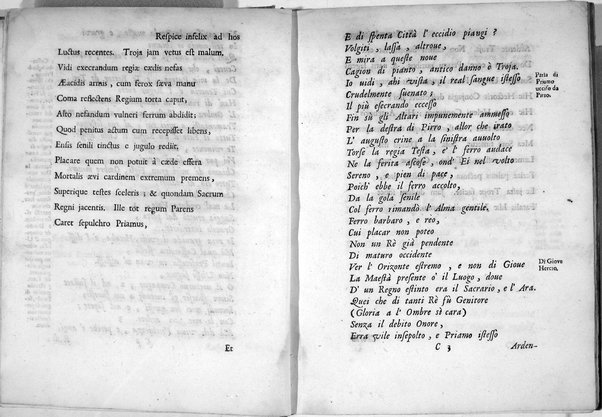 Respice infelix ad hos
Luctus recentes. Troja jam vetus est malum.
Vidi execrandum regiæ cædis nefas
Æacidis armis, cum ferox sæva manu
Coma reflectens Regium torta caput,
Alto nefandum vulneri ferrum abdidit;
Quod penitus actum cum recepisset libens,
Ensis senili tinctus e jugulo rediit,
Placare quem non potuit à cæde effera
Mortalis ævi cardinem extremum premens,
Superique testes sceleris, & quondam Sacrum
Regni jacentis. Ille tot regum Parens
Caret sepulchro Priamus,
Et
E di spenta Città l' eccidio piangi?
Volgiti, lassa, altroue,
E mira a queste noue
Cagion di pianto, antico danno è Troja.
Io uidi, ahi vista, il real sangue istesso
Crudelmente suenato;
Il più esecrando eccesso
Fin sù gli Altari impunemente ammesso
Per la destra di Pirro, allor che irato
L' augusto crine a la sinistra auuolto
Torse la regia Testa, e l' ferro audace
Ne la ferita ascose, ond' Ei nel volto
Sereno, e pien di pace,
Poich' ebbe il ferro accolto,
Da la gola senile
Col ferro rimandò l' Alma gentile.
Ferro barbaro, e reo,
Cui placar non poteo
Non un Rè già pendente
Di maturo occidente
Ver l' Orizonte estremo, e non di Gioue
La Maestà presente o' il Luogo, doue
D' un Regno estinto era il Sacrario, e l' Ara.
Quei che di tanti Rè fù Genitore
(Gloria a l' Ombre sì cara)
Senza il debito Onore,
Erra vile insepolto, e Priamo istesso
C 3 Arden-
Parla di
Priamo
ucciso da
Pirro.
Di Giove
Herceo.